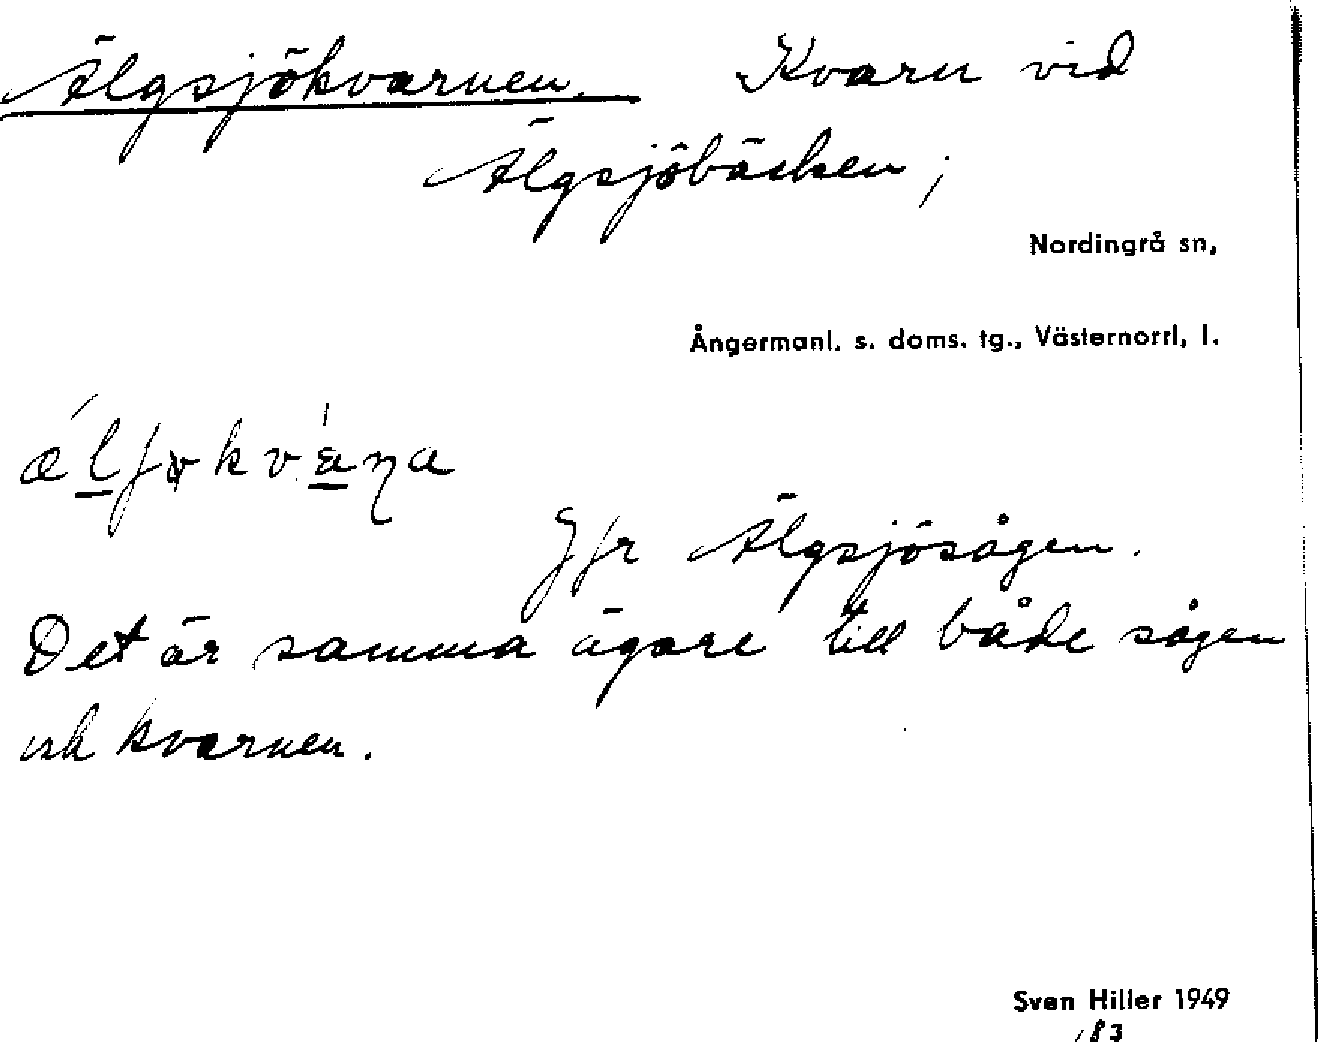 Älgsjökvarnen. Kvarn vid
Älgsjöbäcken;
Nordingrå sn,
Ångermanl. s. doms. tg., Västernorrl. l.
Jfr Älgsjösågen.
Det är samma ägare till både sågen
och kvarnen.
Sven Hiller 1949
183